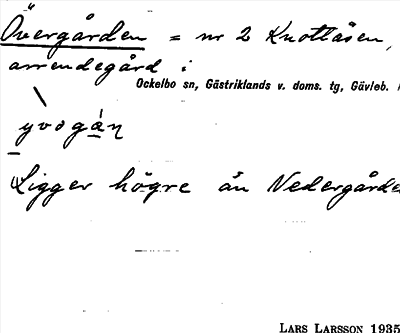 Övergården = nr 2 Knottåsen,
arrendegård i
Ockelbo sn, Gästriklands v. doms. tg, Gävleb.
yvogán
Ligger högre än Nedergårde
LARS LARSSON 1935